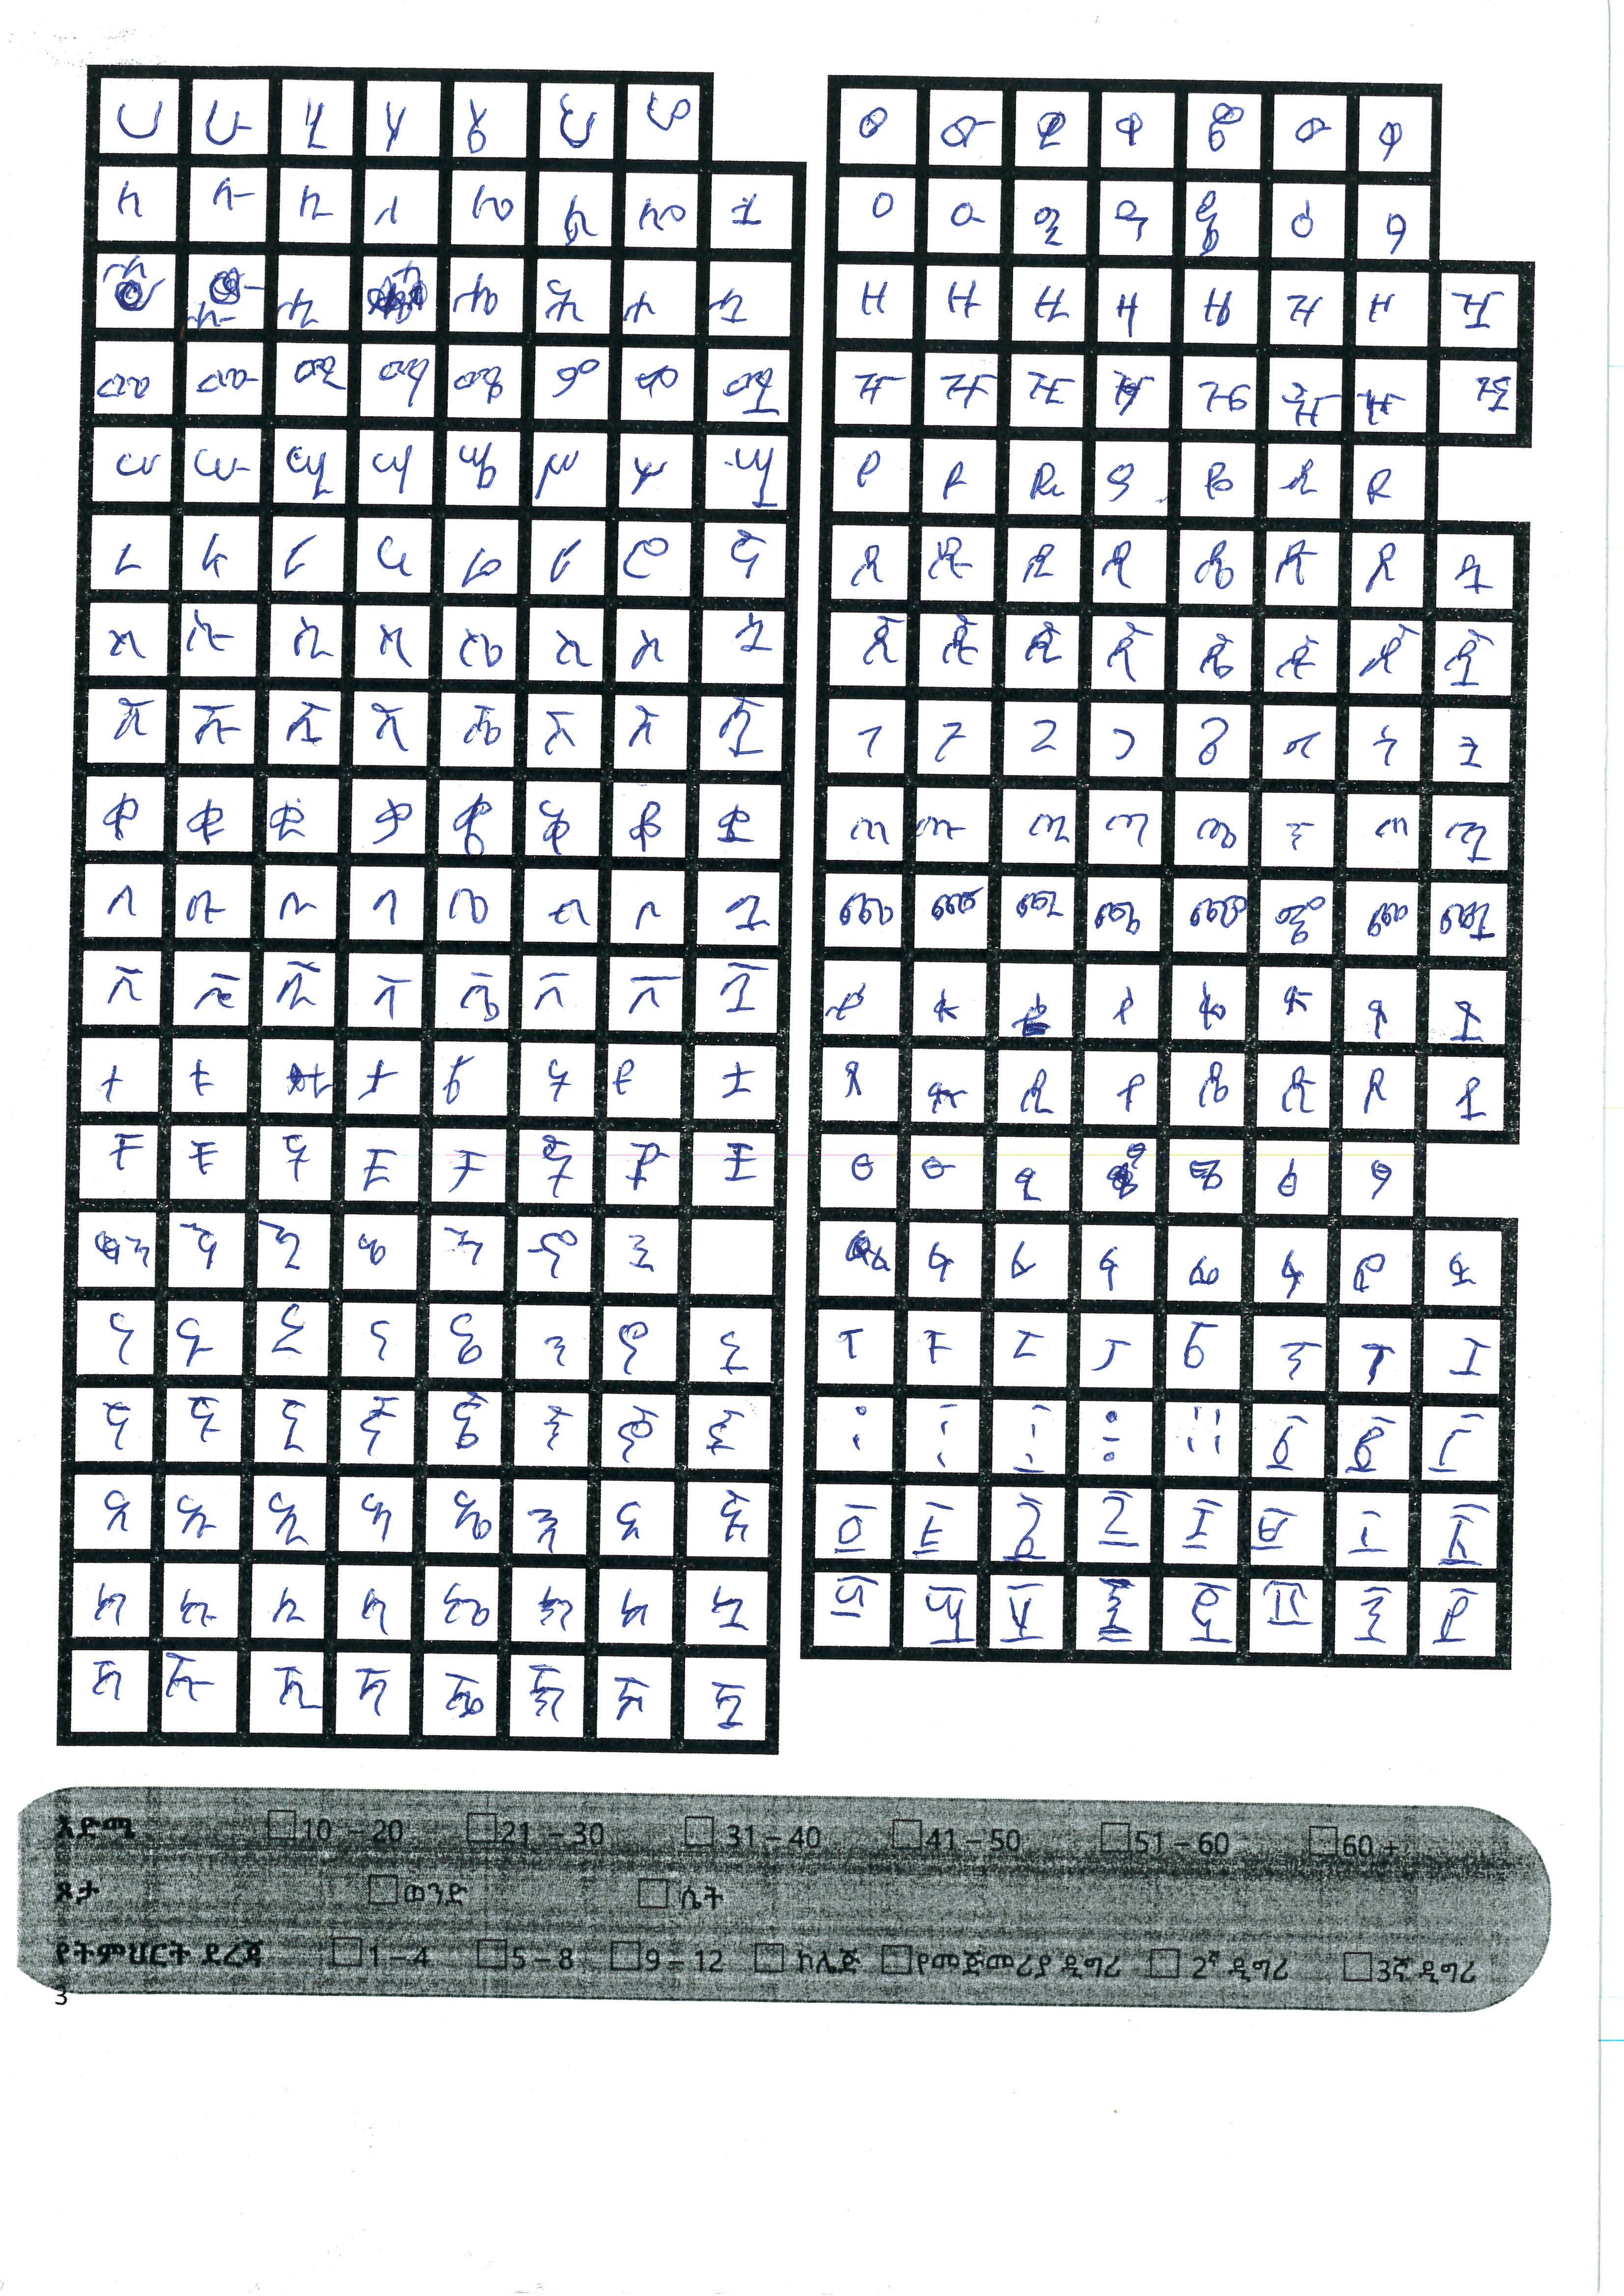 ሀ ሁ ሂ ሃ ሄ ህ ሆ
ለ ሉ ሊ ላ ሌ ል ሎ ሏ
ሐ ሑ ሒ ሓ ሔ ሕ ሖ ሗ
መ ሙ ሚ ማ ሜ ም ሞ ሟ
ሠ ሡ ሢ ሣ ሤ ሥ ሦ ሧ
ረ ሩ ሪ ራ ሬ ር ሮ ሯ
ሰ ሱ ሲ ሳ ሴ ስ ሶ ሷ
ሸ ሹ ሺ ሻ ሼ ሽ ሾ ሿ
ቀ ቁ ቂ ቃ ቄ ቅ ቆ ቋ
በ ቡ ቢ ባ ቤ ብ ቦ ቧ
ቨ ቩ ቪ ቫ ቬ ቭ ቮ ቯ
ተ ቱ ቲ ታ ቴ ት ቶ ቷ
ቸ ቹ ቺ ቻ ቼ ች ቾ ቿ
ኀ ኁ ኂ ኃ ኄ ኅ ኆ
ነ ኑ ኒ ና ኔ ን ኖ ኗ
ኘ ኙ ኚ ኛ ኜ ኝ ኞ ኟ
አ ኡ ኢ ኣ ኤ እ ኦ ኧ
ከ ኩ ኪ ካ ኬ ክ ኮ ኳ
ኸ ኹ ኺ ኻ ኼ ኽ ኾ ዃ
ወ ዉ ዊ ዋ ዌ ው ዎ
ዐ ዑ ዒ ዓ ዔ ዕ ዖ
ዘ ዙ ዚ ዛ ዜ ዝ ዞ ዟ
ዠ ዡ ዢ ዣ ዤ ዥ ዦ ዧ
የ ዩ ዪ ያ ዬ ይ ዮ
ደ ዱ ዲ ዳ ዴ ድ ዶ ዷ
ጀ ጁ ጂ ጃ ጄ ጅ ጆ ጇ
ገ ጉ ጊ ጋ ጌ ግ ጎ ጓ
ጠ ጡ ጢ ጣ ጤ ጥ ጦ ጧ
ጨ ጩ ጪ ጫ ጬ ጭ ጮ ጯ
ጰ ጱ ጲ ጳ ጴ ጵ ጶ ጷ
ጸ ጹ ጺ ጻ ጼ ጽ ጾ ጿ
ፀ ፁ ፂ ፃ ፄ ፅ ፆ
ፈ ፉ ፊ ፋ ፌ ፍ ፎ ፏ
ፐ ፑ ፒ ፓ ፔ ፕ ፖ ፗ
፩ ፪ ፫
፬ ፭ ፮ ፯ ፰ ፱ ፲ ፳
፴ ፵ ፶ ፷ ፸ ፹ ፺ ፻
እድሜ 10 – 20 21 – 30 31 – 40 41 – 50 51 – 60 60 +
ጾታ ወንድ ሴት
የትምህርት ደረጃ 1 – 4 5 – 8 9 – 12 ኮሌጅ የመጀመሪያ ዲግሪ 2ኛ ዲግሪ 3ኛ ዲግሪ
3